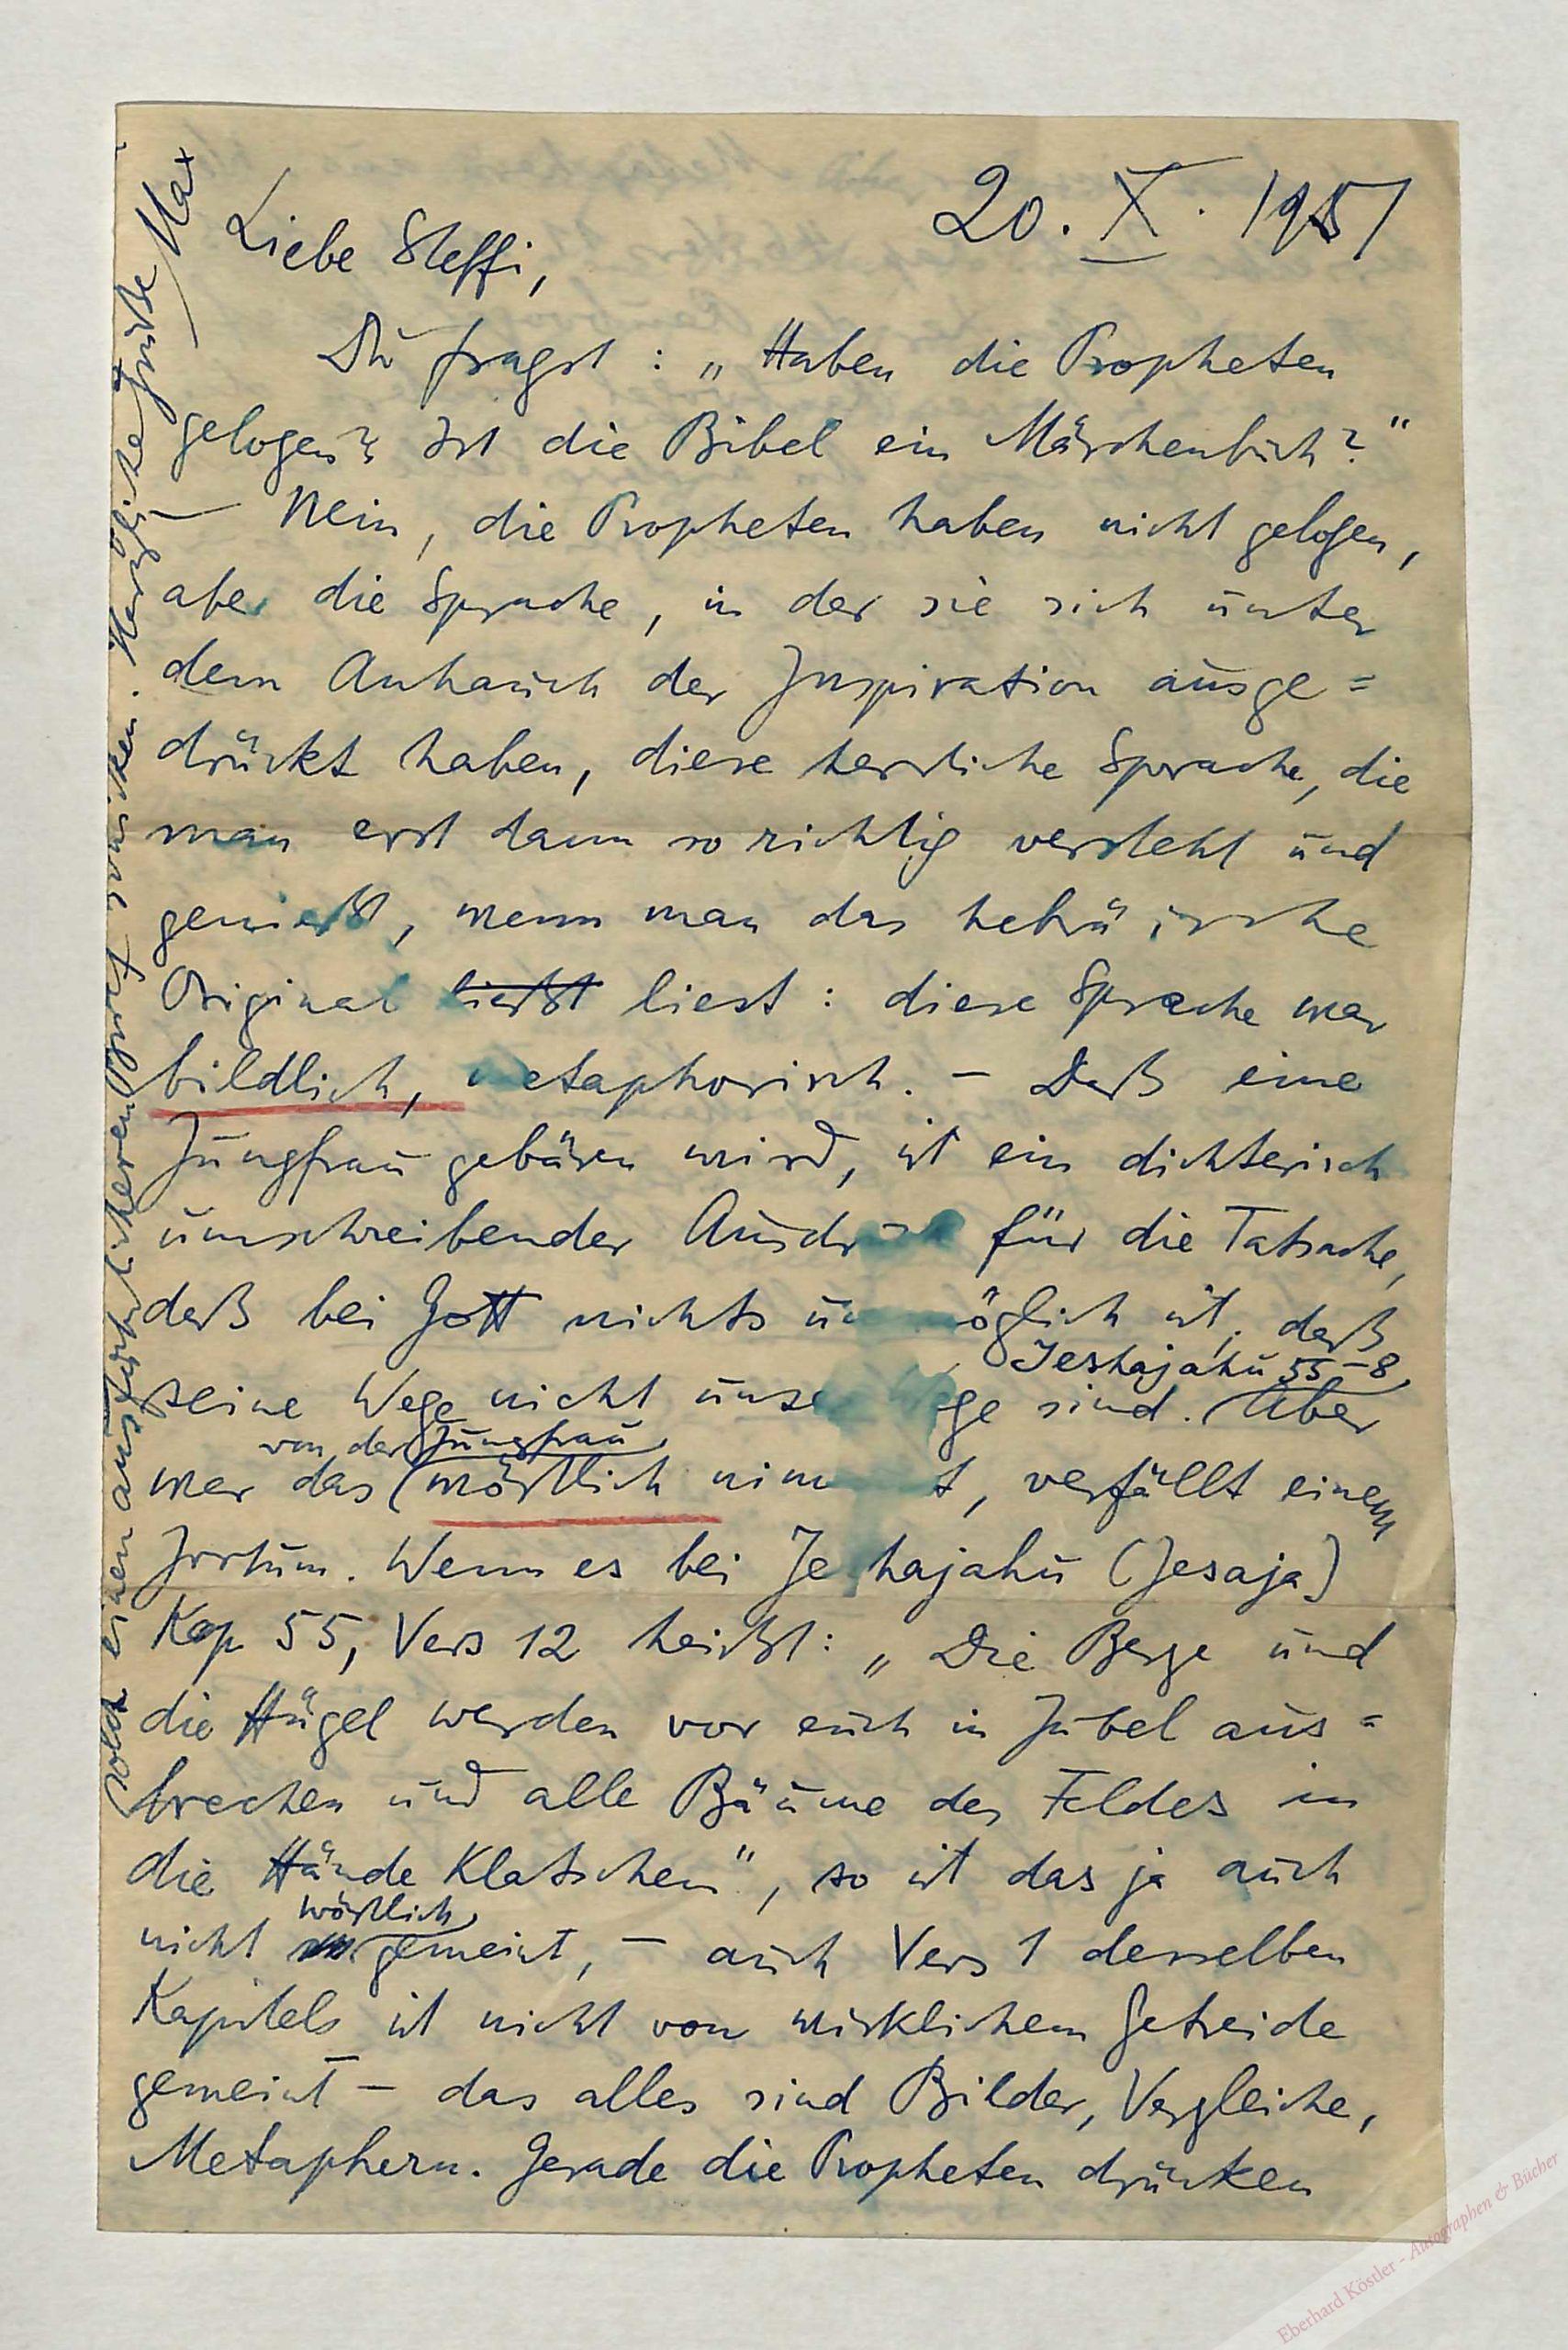 20. X. 1951
Liebe Steffi,
Du fragst: „Haben die Propheten
gelogen? Ist die Bibel ein Märchenbuch?"
– Nein, die Propheten haben nicht gelogen,
aber die Sprache, in der sie sich unter
dem Anhauch der Inspiration ausge=
drückt haben, diese herrliche Sprache, die
man erst dann so richtig versteht und
genießt, wenn man das hebräische
Original ließt liest: diese Sprache war
bildlich, metaphorisch. – Daß eine
Jungfrau gebären wird, ist ein dichterisch
umschreibender Ausdruck für die Tatsache,
daß bei Gott nichts unmöglich ist, daß
Jeshajahu 55–8
seine Wege nicht unsere Wege sind. Aber
von der Jungfrau
wer das wörtlich nimmt, verfällt einem
Irrtum. Wenn es bei Jeshajahu (Jesaja)
Kap 55, Vers 12 heißt: „Die Berge und
die Hügel werden vor euch in Jubel aus=
brechen und alle Bäume des Feldes in
die Hände klatschen", so ist das ja auch
wörtlich
nicht gemeint, – auch Vers 1 desselben
Kapitels ist nicht von wirklichem Getreide
gemeint – das alles sind Bilder, Vergleiche,
Metaphern. Gerade die Propheten drücken
solch einen ausführlicheren Brief schicken. Herzliche Grüße Max
Eberhard Köstler - Autographen & Bücher